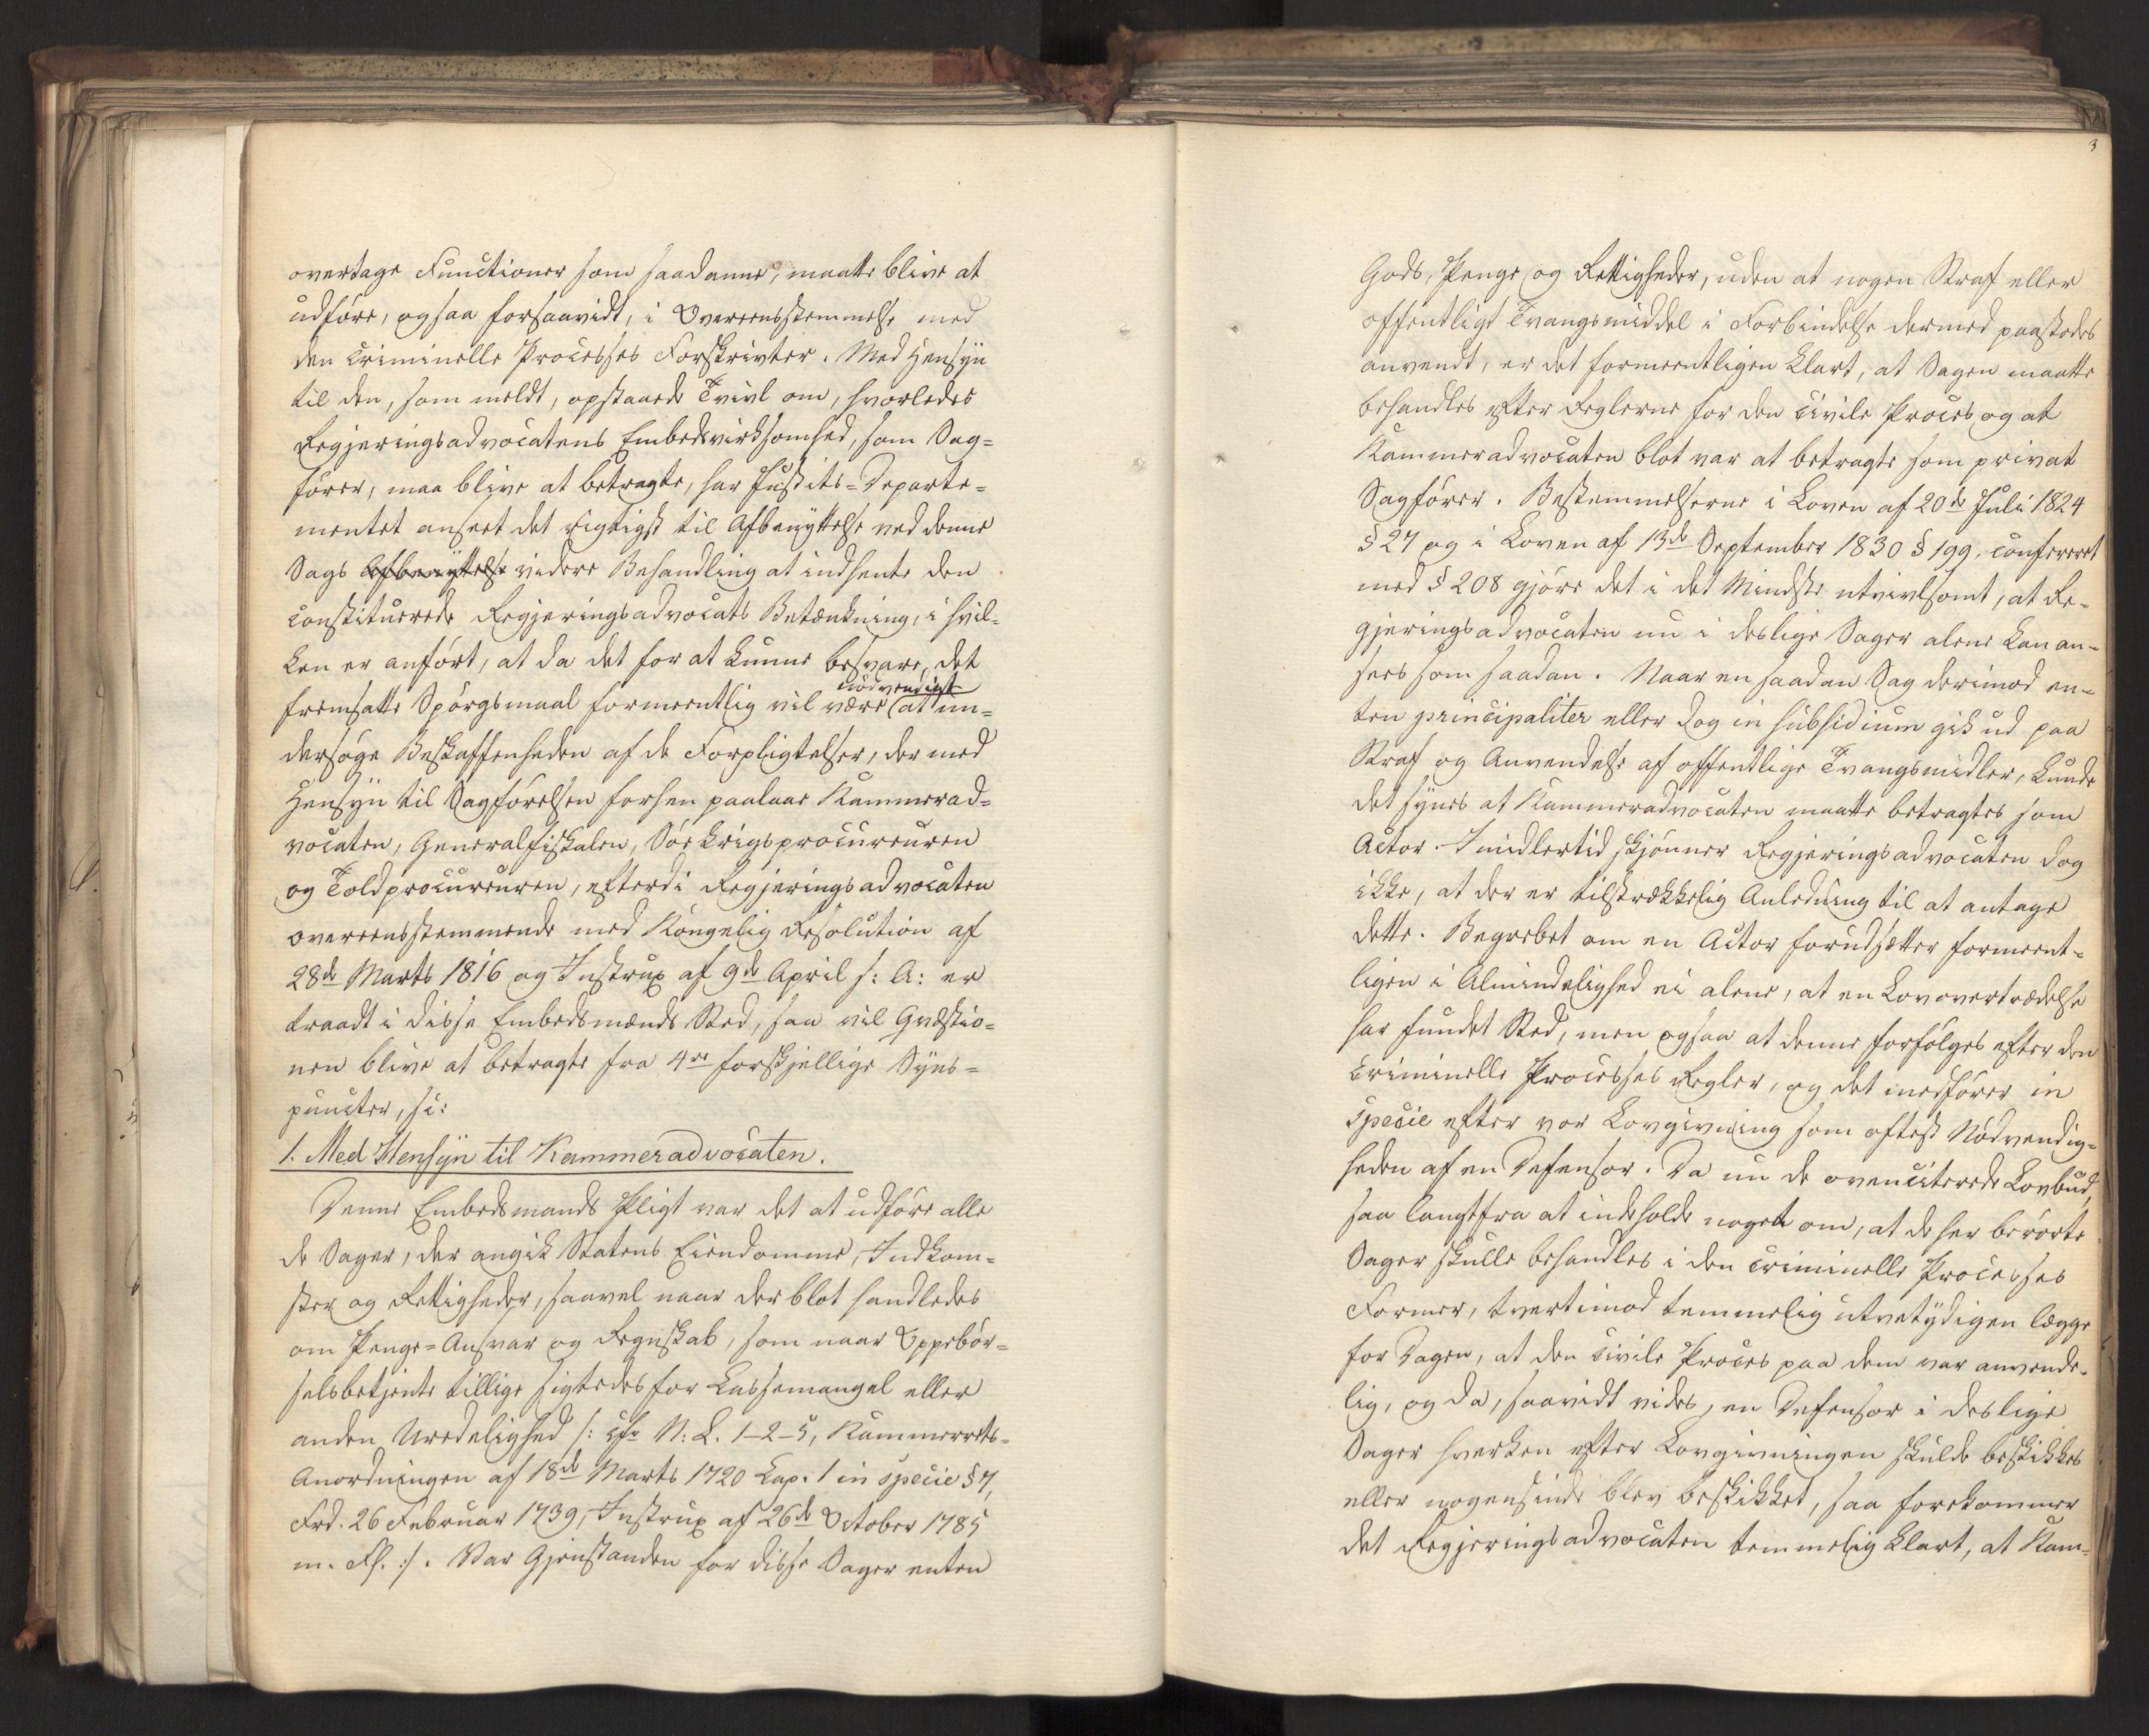 overtage Functioner som saadanne, maatte blive at
udføre, ogsaa forsaavidt, i Overeensstemmelse med
den criminelle Processes Forskrivter. Med Hensyn
til den, som meldt, opstaaede Tvivl om, hvorledes
Regjeringsadvocatens Embedsvirksomhed, som Sag-
fører, maa blive at betragte, har Justits-Departe-
mentet anseet det rigtigst til Afbenyttelse ved denne
Sags Afbenyttelse videre Behandling at indhente den
constituerede Regjeringsadvocats Betænkning, i hvil-
ken er anført, at da det for at kunne besvare, det
nødvendigt
fremsatte Spørgsmaal formeentlig vil være (at un-
dersøge Beskaffenheden af de Forpligtelser, der med
Hensyn til Sagførelsen forhen paalaae Kammerad-
vocaten, Generalfiskalen, Søe krigsprocureuren
og Toldprocureuren, efterdi Regjeringsadvocaten
overeensstemmende med Kongelig Resolution af
28de Marts 1816 og Instrux af 9de April s: A: er
traadt i disse Embedsmænds Sted, saa vil Qvæstio-
nen blive at betragte fra 4re forskjellige Syns-
puncter, sc:
1. Med Hensyn til Kammeradvocaten.
Denne Embedsmands Pligt var det at udføre alle
de Sager, der angik Statens Eiendomme, Indkom-
ster og Rettigheder, saavel naar der blot handledes
om Penge-Ansvar og Regnskab, som naar Oppebør-
selsbetjente tillige sigtedes for Cassemangel eller
anden Uredelighed /: cfr N: L. 1-2-5, Kammerrets-
Anordningen af 18de Marts 1720 Cap. 1 in specie § 7,
Frd. 26 Februar 1739, Instrux af 26de October 1785
m. Fl. :/. Var Gjenstanden for disse Sager enten
3
Gods, Penge og Rettigheder, uden at nogen Straf eller
offentligt Tvangsmiddel i Forbindelse dermed paastodes
anvendt, er det formeentligen klart, at Sagen maatte
behandles efter Reglerne for den civile Proces og at
Kammeradvocaten blot var at betragte som privat
Sagfører. Bestemmelserne i Loven af 20de Juli 1824
§ 27 og i Loven af 13de September 1830 § 199, confereret
med § 208 gjøre det i det Mindste utvivlsomt, at Re-
gjeringsadvocaten nu i deslige Sager alene kan an-
sees som saadan. Naar en saadan Sag derimod en-
ten principaliter eller dog in subsidium gik ud paa
Straf og Anvendelse af offentlige Tvangsmidler, kunde
det synes at Kammeradvocaten maatte betragtes som
Actor. Imidlertid skjønner Regjeringsadvocaten dog
ikke, at der er tilstrækkelig Anledning til at antage
dette. Begrebet om en Actor forudsætter formeent-
ligen i Almindelighed ei alene, at en Lovovertrædelse
har fundet Sted, men ogsaa at denne forfølges efter den
criminelle Processes Regler, og det medfører in
specie efter vor Lovgivning som oftest Nødvendig-
heden af en Defensor. Da nu de ovenciterede Lovbud,
saa langtfra at indeholde noget om, at de her berørte
Sager skulle behandles i den criminelle Processes
Former, tvertimod temmelig utvetydigen lægge
for Dagen, at den civile Proces paa dem var anvende-
lig, og da, saavidt vides, en Defensor i deslige
Sager hverken efter Lovgivningen skulde beskikkes
eller nogensinde blev beskikket, saa forekommer
det Regjeringsadvocaten temmelig klart, at Kam-